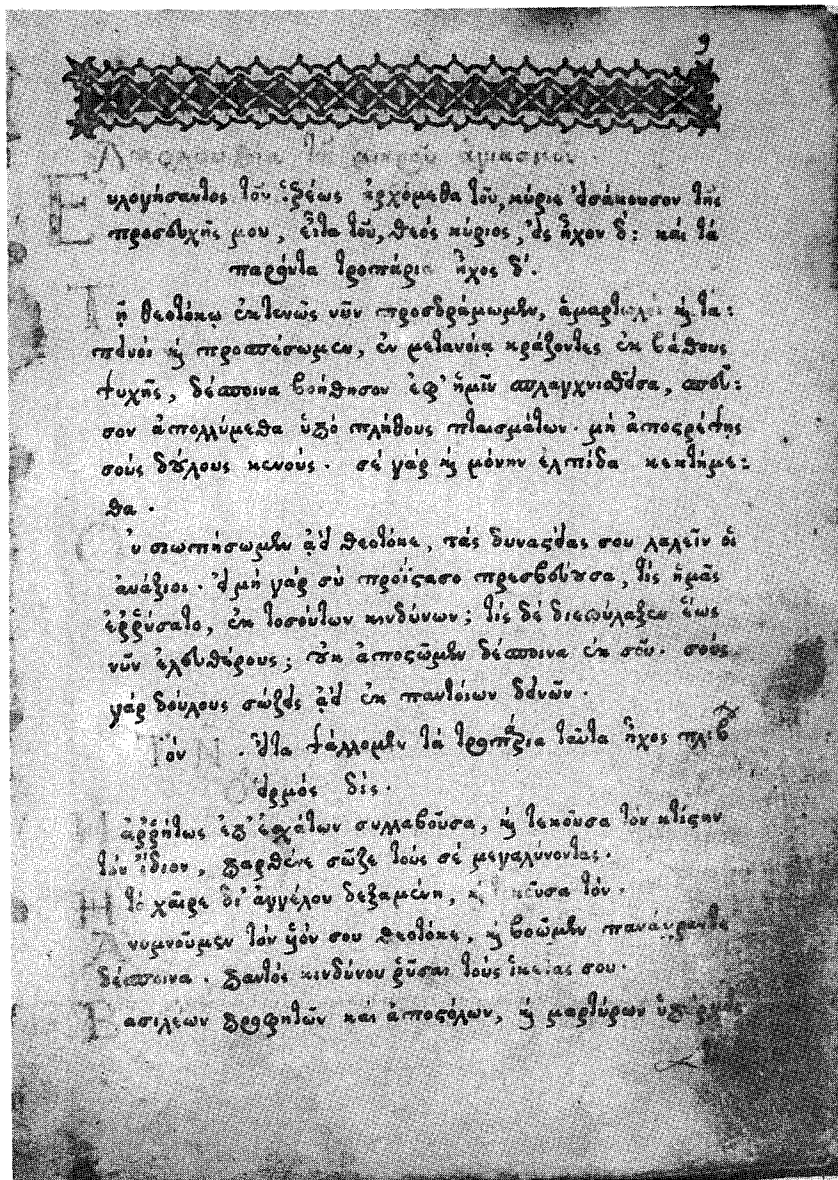 9
Ἀκολουθία τοῦ μικροῦ ἁγιασμοῦ.
Εὐλογήσαντος τοῦ ἱερέως ἀρχόμεθα τοῦ, κύριε εἰσάκουσον τῆς
προσευχῆς μου, εἶτα τοῦ, θεὸς κύριος, εἰς ἦχον δ': καὶ τὰ
παρόντα τροπάρια ἦχος δ'.
Τῇ θεοτόκῳ ἐκτενῶς νῦν προσδράμωμεν, ἁμαρτωλοὶ καὶ τα:
πεινοὶ καὶ προσπέσωμεν, ἐν μετανοίᾳ κράζοντες ἐκ βάθους
ψυχῆς, δέσποινα βοήθησον ἐφ' ἡμῖν σπλαγχνισθεῖσα, σπεῦ:
σον ἀπολλύμεθα ὑπὸ πλήθους πταισμάτων. μὴ ἀποστρέψῃς
σοὺς δούλους κενούς. σὲ γὰρ καὶ μόνην ἐλπίδα κεκτήμε:
θα.
Οὐ σιωπήσωμεν ἀεὶ θεοτόκε, τὰς δυναστείας σου λαλεῖν οἱ
ἀνάξιοι. εἰ μὴ γὰρ σὺ προΐστασο πρεσβεύουσα, τίς ἡμᾶς
ἐῤῥύσατο, ἐκ τοσούτων κινδύνων; τίς δὲ διεφύλαξεν ἕως
νῦν ἐλευθέρους; οὐκ ἀποστῶμεν δέσποινα ἐκ σοῦ. σοὺς
γὰρ δούλους σώζεις ἀεὶ ἐκ παντοίων δεινῶν.
Τὸν Ν . εἶτα ψάλλομεν τὰ τροπάρια ταῦτα ἦχος πλ β
Ὁ εἱρμὸς δίς.
Ἡ ἀῤῥήτως ἐπ' ἐσχάτων συλλαβοῦσα, καὶ τεκοῦσα τὸν κτίστην
τὸν ἴδιον, παρθένε σῶζε τοὺς σὲ μεγαλύνοντας.
Ἡ τὸ χαῖρε δι' ἀγγέλου δεξαμένη, καὶ τεκοῦσα τὸν.
Ἀνυμνοῦμεν τὸν υἱόν σου θεοτόκε, καὶ βοῶμεν πανάχραντε
δέσποινα. παντὸς κινδύνου ῥῦσαι τοὺς ἱκέτας σου.
Βασιλέων προφητῶν καὶ ἀποστόλων, καὶ μαρτύρων